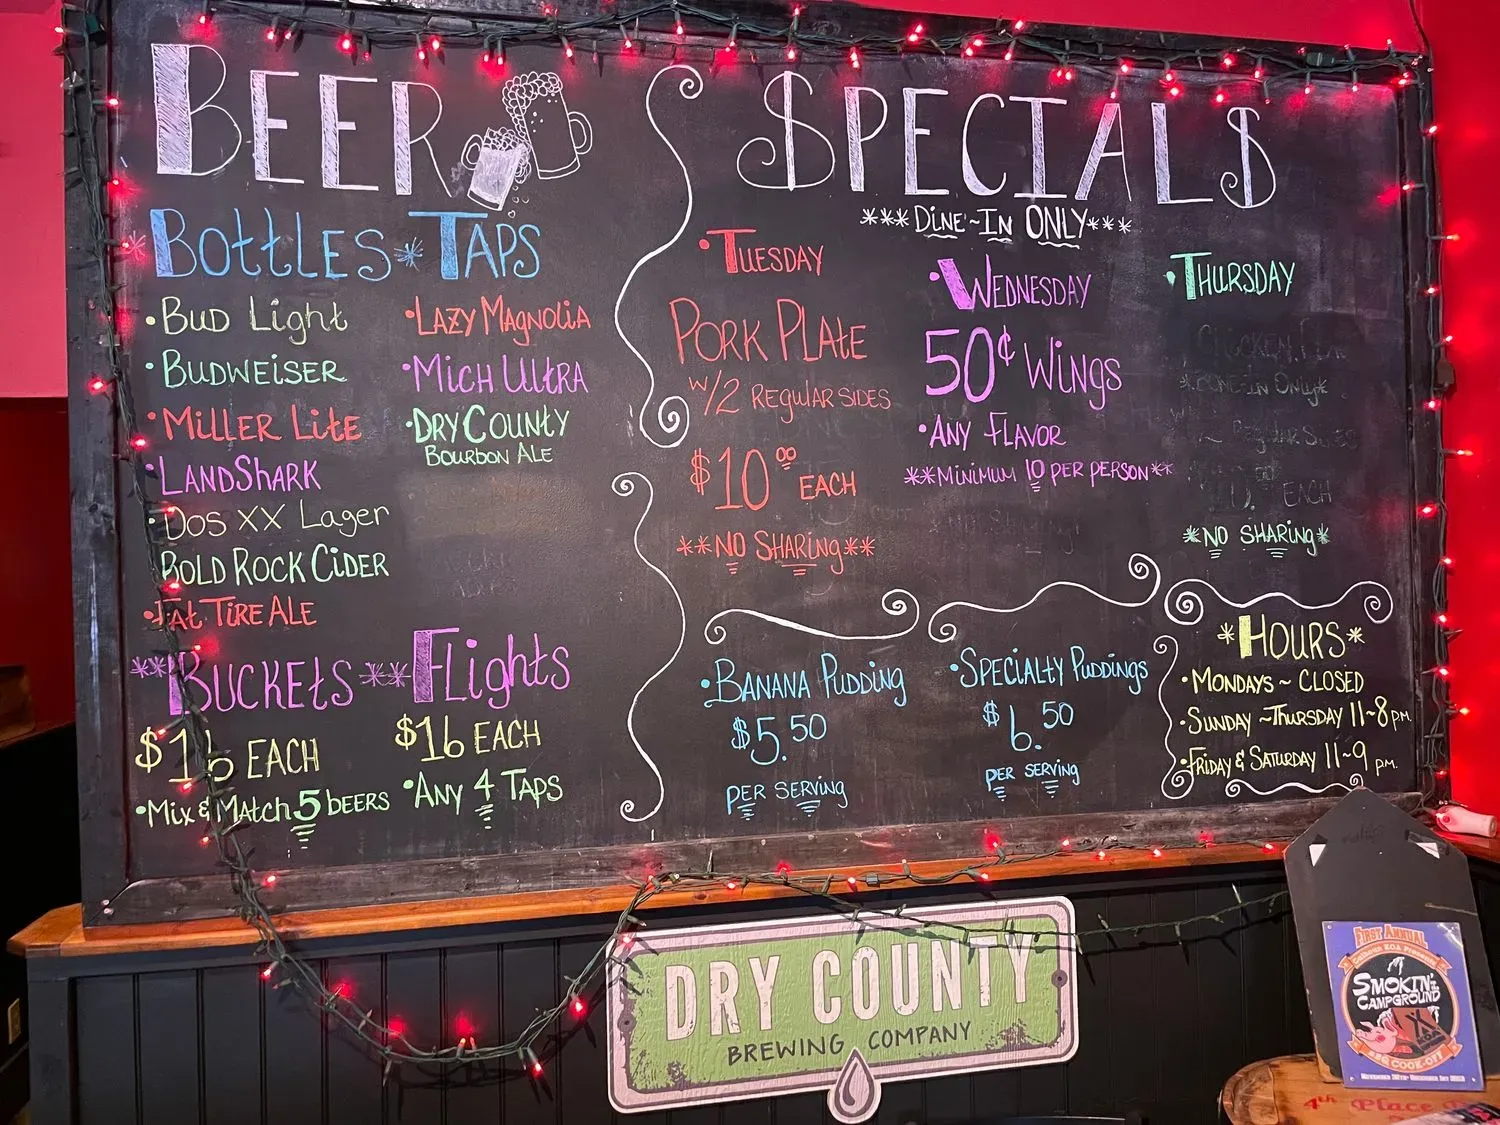 BEER
BOttLES * TAPS
• BUD Light
• BUDWEiSER
• MiLLER LitE
• LANDSHARK
• DOS XX Lager
BOLD ROCK CiDER
• FAt TiRE ALE
• LAZY MAgNOLiA
• MiCH ULtRA
• DRY COUNtY
BOURBON ALE
**BUCKEtS**
$16 EACH
• Mix & Match 5 BEERS
FLightS
$16 EACH
• ANY 4 TAPS
SPECIALS
*** DiNE~IN ONLY ***
• TUESDAY
PORK PLAtE
W/2 REgULAR SiDES
$10.00 EACH
**NO SHARiNg**
• WEDNESDAY
50¢ WiNgS
• ANY FLAVOR
**MiNiMUM 10 PER PERSON**
• THURSDAY
EACH
*NO SHARiNg*
• BANANA PUDDiNg
$5.50
PER SERViNg
• SPECiALtY PUDDiNgS
$6.50
PER SERViNg
*HOURS*
• MONDAYS ~ CLOSED
• SUNDAY ~ THURSDAY 11~8 PM.
• FRiDAY & SAtURDAY 11~9 PM.
DRY COUNTY
BREWING COMPANY
FIRST ANNUAL
SMOKIN' IN THE
CAMPGROUND
BBQ COOK-OFF
4th Place